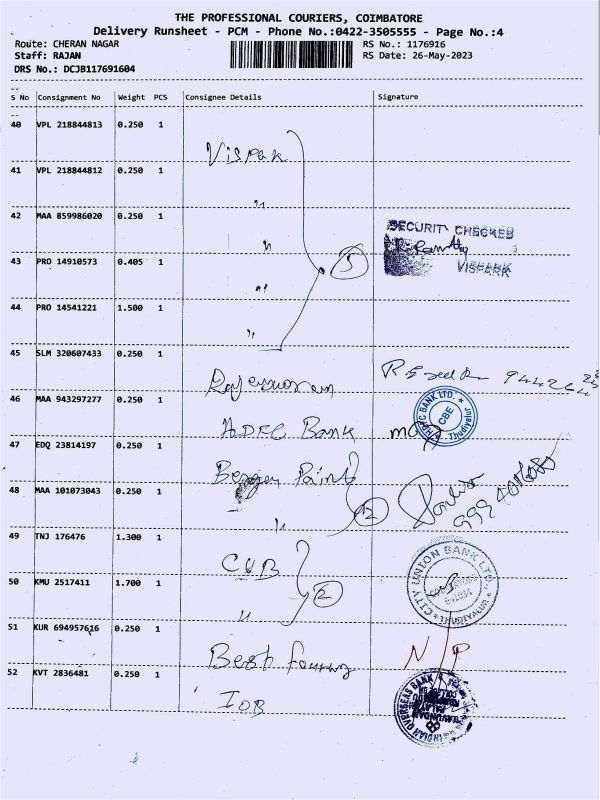 THE PROFESSIONAL COURIERS, COIMBATORE
Delivery Runsheet - PCM - Phone No.:0422-3505555 - Page No.:4
Route: CHERAN NAGAR RS No.: 1176916
Staff: RAJAN RS Date: 26-May-2023
DRS No.: DCJB117691604
--
S No Consignment No Weight PCS Consignee Details Signature
--
40 VPL 218844813 0.250 1 Vispak
41 VPL 218844812 0.250 1 "
42 MAA 859986020 0.250 1 " SECURITY CHECKED
VISPARK
43 PRO 14910573 0.405 1 " 5
44 PRO 14541221 1.500 1 "
45 SLM 320607433 0.250 1
46 MAA 943297277 0.250 1 HDFC Bank HDFC BANK LTD. CBE Thudiyalur
47 EDQ 23814197 0.250 1 Berger Paint
48 MAA 101073043 0.250 1 " 2
49 TNJ 176476 1.300 1 CUB CITY UNION BANK LTD THUDIYALUR
50 KMU 2517411 1.700 1 " 2
51 KUR 694957616 0.250 1 Best N/P
52 KVT 2836481 0.250 1 IOB INDIAN OVERSEAS BANK